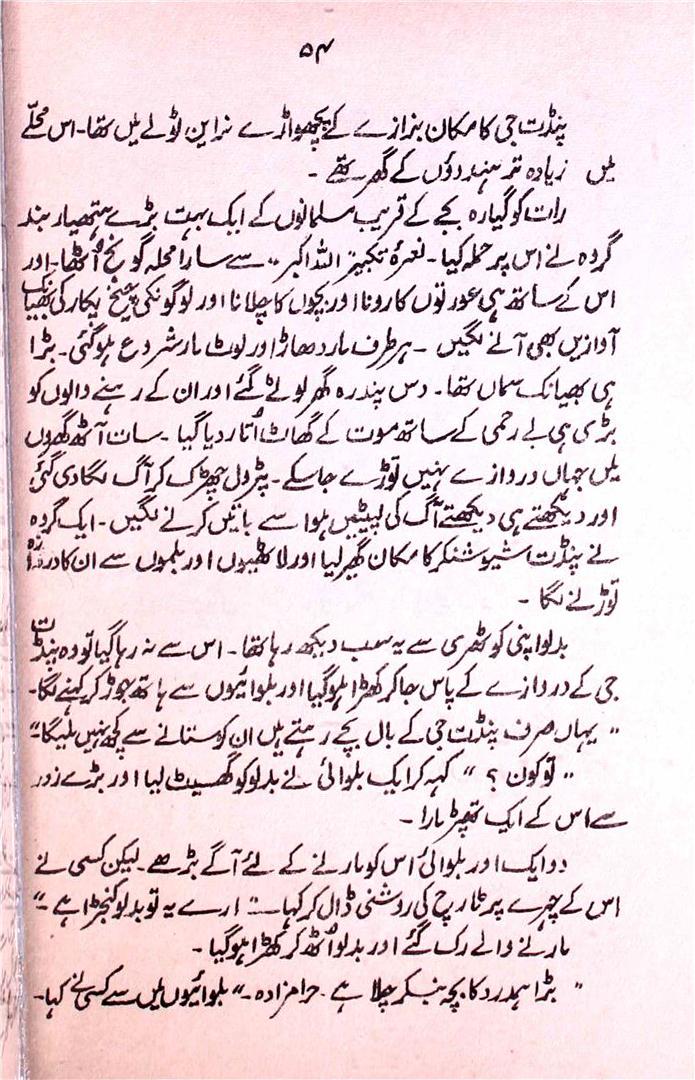 ۵۴
پنڈت جی کا مکان بزازے کے پچھواڑے نراین ٹولے میں تھا۔ اس محلّے
میں زیادہ تر ہندوؤں کے گھر تھے ۔
رات کو گیارہ بجے کے قریب مسلمانوں کے ایک بہت بڑے ہتھیار بند
گروہ نے اس پر حملہ کیا۔ نعرۂ تکبیر اللہ اکبر ،، سے سارا محلہ گونج اُٹھا۔ اور
اس کے ساتھ ہی عورتوں کا رونا اور بچوں کا چلانا اور لوگونکی چیخ پکار کی بھیانک
آوازیں بھی آنے لگیں ۔ ہر طرف مار دھاڑ اور لوٹ مار شروع ہو گئی۔ بڑا
ہی بھیانک سماں تھا۔ دس پندرہ گھر لوٹے گئے اور ان کے رہنے والوں کو
بڑی ہی بے رحمی کے ساتھ موت کے گھاٹ اُتار دیا گیا ۔ سات آٹھ گھروں
میں جہاں دروازے نہیں توڑے جا سکے ۔ پٹرول چھڑک کر آگ لگا دی گئی
اور دیکھتے ہی دیکھتے آگ کی لپیٹیں ہوا سے باتیں کرنے لگیں ۔ ایک گروہ
نے پنڈت شیو شنکر کا مکان گھیر لیا اور لاٹھیوں اور بلموں سے ان کا دروازہ
توڑنے لگا ۔
بدلو اپنی کوٹھری سے یہ سب دیکھ رہا تھا ۔ اس سے نہ رہا گیا تو وہ پنڈت
جی کے دروازے کے پاس جا کر کھڑا ہو گیا اور بلوائیوں سے ہاتھ جوڑ کر کہنے لگا۔
،، یہاں صرف پنڈت جی کے بال بچے رہتے ہیں ان کو ستانے سے کچھ نہیں ملیگا،،
،، تو کون ؟ ،، کہہ کر ایک بلوائی نے بدلو کو گھسیٹ لیا اور بڑے زور
سے اس کے ایک تھپڑ مارا ۔
دو ایک اور بلوائی اس کو مارنے کے لئے آگے بڑھے ۔ لیکن کسی نے
اس کے چہرے پر ٹارچ کی روشنی ڈال کر کہا ۔ ،، ارے یہ تو بدلو کنجڑا ہے ۔،،
مارنے والے رک گئے اور بدلو اُٹھ کر کھڑا ہو گیا ۔
،، بڑا ہمدرد کا بچہ بنکر چلا ہے ۔ حرامزادہ ۔،، بلوائیوں میں سے کسی نے کہا۔